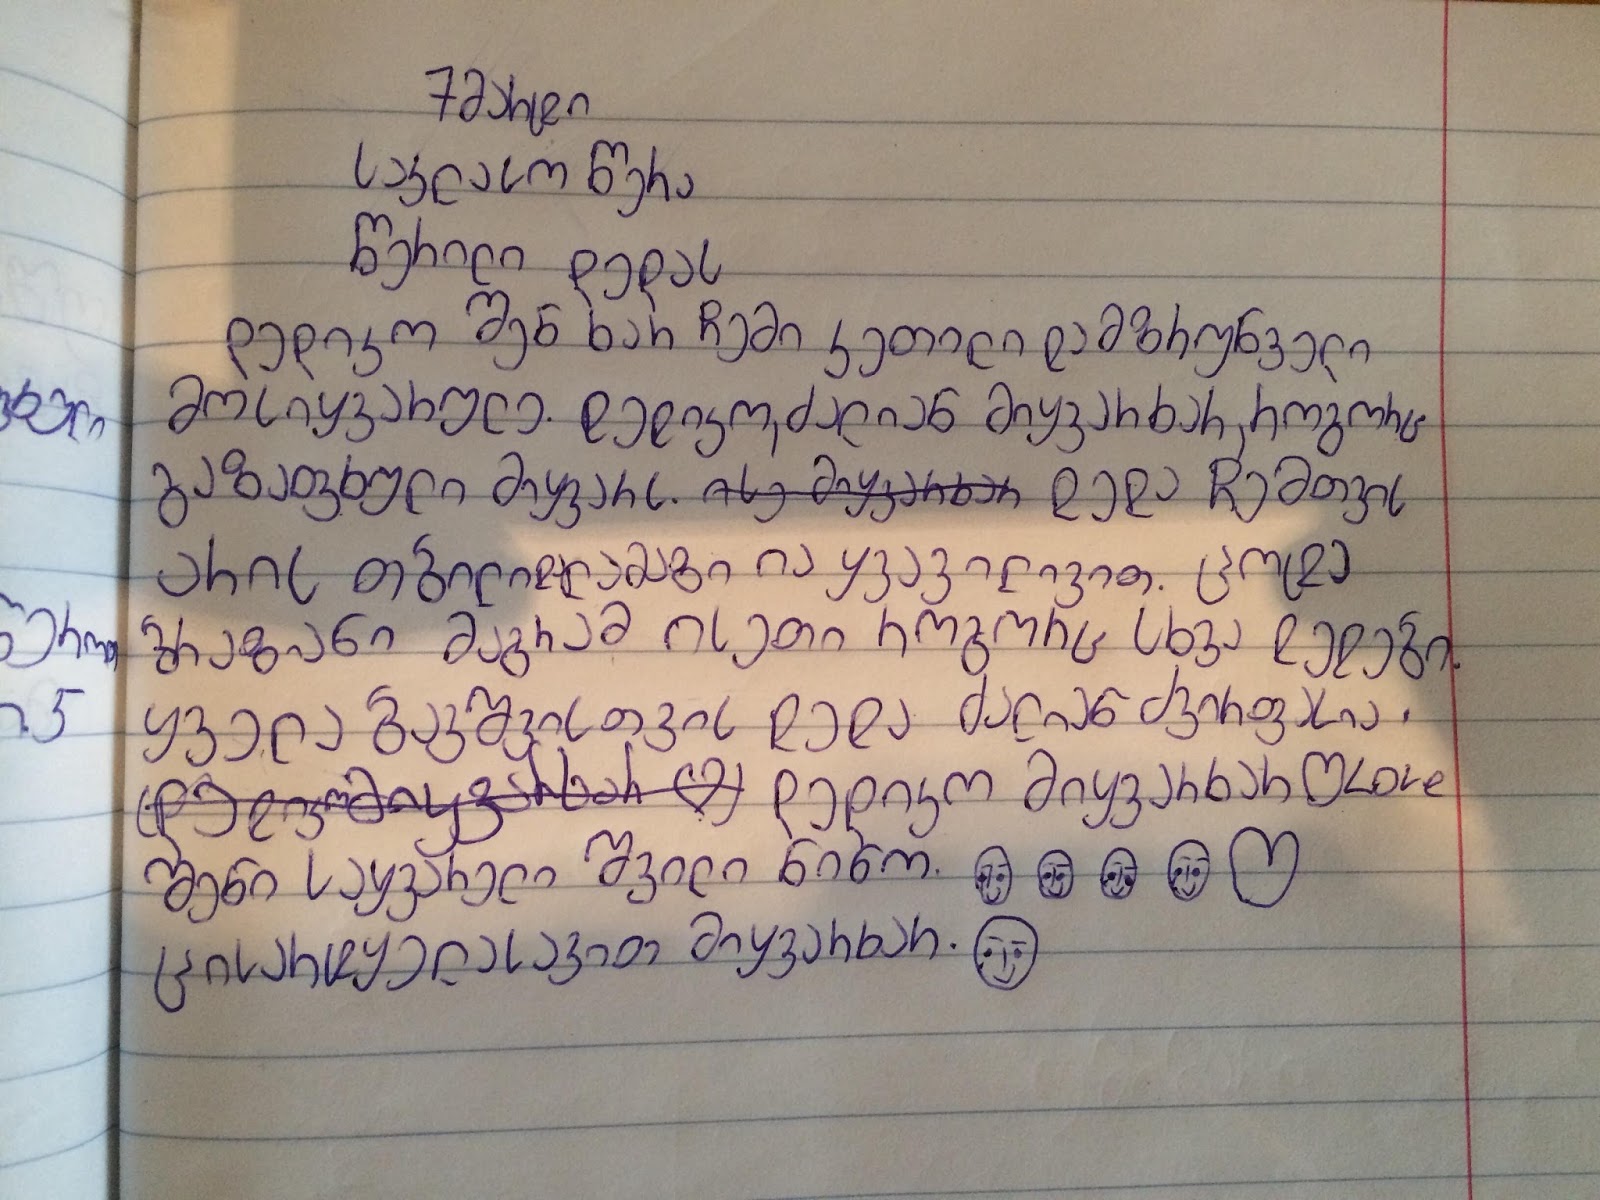 7 მარტი
საკლასო წერა
წერილი დედას
დედიკო შენ ხარ ჩემი კეთილი დამზრუნველი
მოსიყვარულე. დედიკო, ძალიან მიყვარხარ, როგორც
გაზაფხული მიყვარს. ისე მიყვარხარ დედა ჩემთვის
არის თბილი ლამაზი ია ყვავილივით. ცოტა
ბრაზიანი მაგრამ ისეთი როგორც სხვა დედები.
ყველა ბავშვისთვის დედა ძალიან ძვირფასია.
(დედიკო მიყვარხარ ♡) დედიკო მიყვარხარ ♡ Love
შენი საყვარელი შვილი ნინო.
ცისარტყელასავით მიყვარხარ.